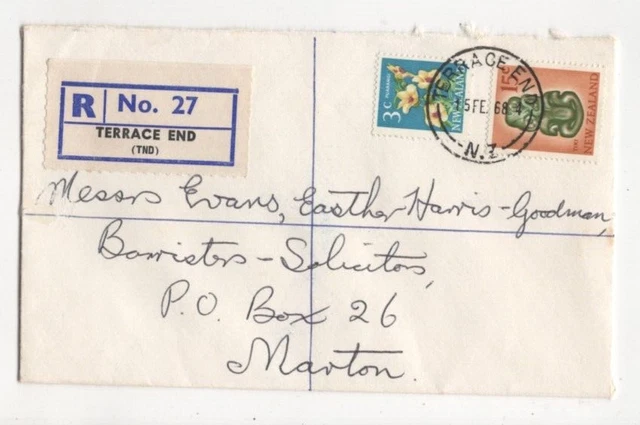 R No. 27
TERRACE END
(TND)
3c PUARANGI
NEW ZEALAND
15c TIKI
NEW ZEALAND
TERRACE END
15 FE 68
N.Z.
Messrs Evans, Easther Harris-Goodman,
Barristers-Solicitors,
P.O. Box 26
Marton.